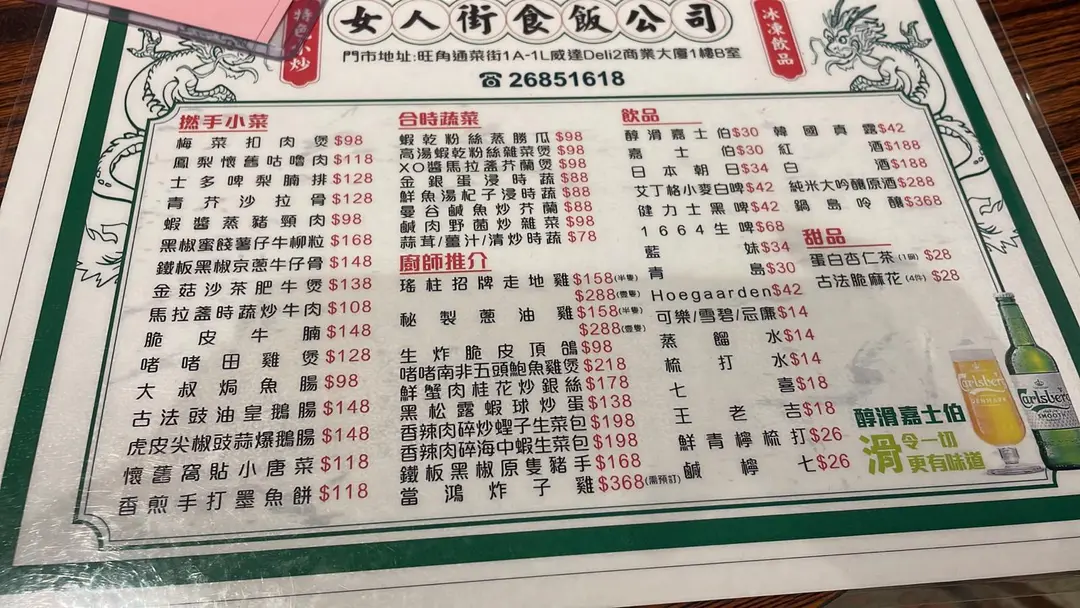 特色小炒
女人街食飯公司
冰凍飲品
門市地址:旺角通菜街1A-1L威達Deli2商業大廈1樓B室
☎26851618
撚手小菜
梅菜扣肉煲$98
鳳梨懷舊咕嚕肉$118
士多啤梨腩排$128
青芥沙拉骨$128
蝦醬蒸豬頸肉$98
黑椒蜜餞薯仔牛柳粒$168
鐵板黑椒京蔥牛仔骨$148
金菇沙茶肥牛煲$138
馬拉盞時蔬炒牛肉$108
脆皮牛腩$148
啫啫田雞煲$128
大叔焗魚腸$98
古法豉油皇鵝腸$148
虎皮尖椒豉蒜爆鵝腸$148
懷舊窩貼小唐菜$118
香煎手打墨魚餅$118
合時蔬菜
蝦乾粉絲蒸勝瓜$98
高湯蝦乾粉絲雜菜煲$98
XO醬馬拉盞芥蘭煲$98
金銀蛋浸時蔬$88
鮮魚湯杞子浸時蔬$88
曼谷鹹魚炒芥蘭$88
鹹肉野菌炒雜菜$98
蒜茸/薑汁/清炒時蔬$78
廚師推介
瑤柱招牌走地雞$158(半隻)
$288(壹隻)
秘製蔥油雞$158(半隻)
$288(壹隻)
生炸脆皮頂鴿$98
啫啫南非五頭鮑魚雞煲$218
鮮蟹肉桂花炒銀絲$178
黑松露蝦球炒蛋$138
香辣肉碎炒蟶子生菜包$198
香辣肉碎海中蝦生菜包$198
鐵板黑椒原隻豬手$168
當鴻炸子雞$368(需預訂)
飲品
醇滑嘉士伯$30
嘉士伯$30
日本朝日$34
艾丁格小麥白啤$42
健力士黑啤$42
1664生啤$68
藍妹$34
青島$30
Hoegaarden$42
可樂/雪碧/忌廉$14
蒸餾水$14
梳打水$14
七喜$18
王老吉$18
鮮青檸梳打$26
鹹檸七$26
韓國真露$42
紅酒$188
白酒$188
純米大吟釀原酒$288
鍋島吟釀$368
甜品
蛋白杏仁茶(1個)$28
古法脆麻花(4件)$28
Carlsberg
DENMARK
Carlsberg
SMOOTH
醇滑嘉士伯
滑令一切
更有味道